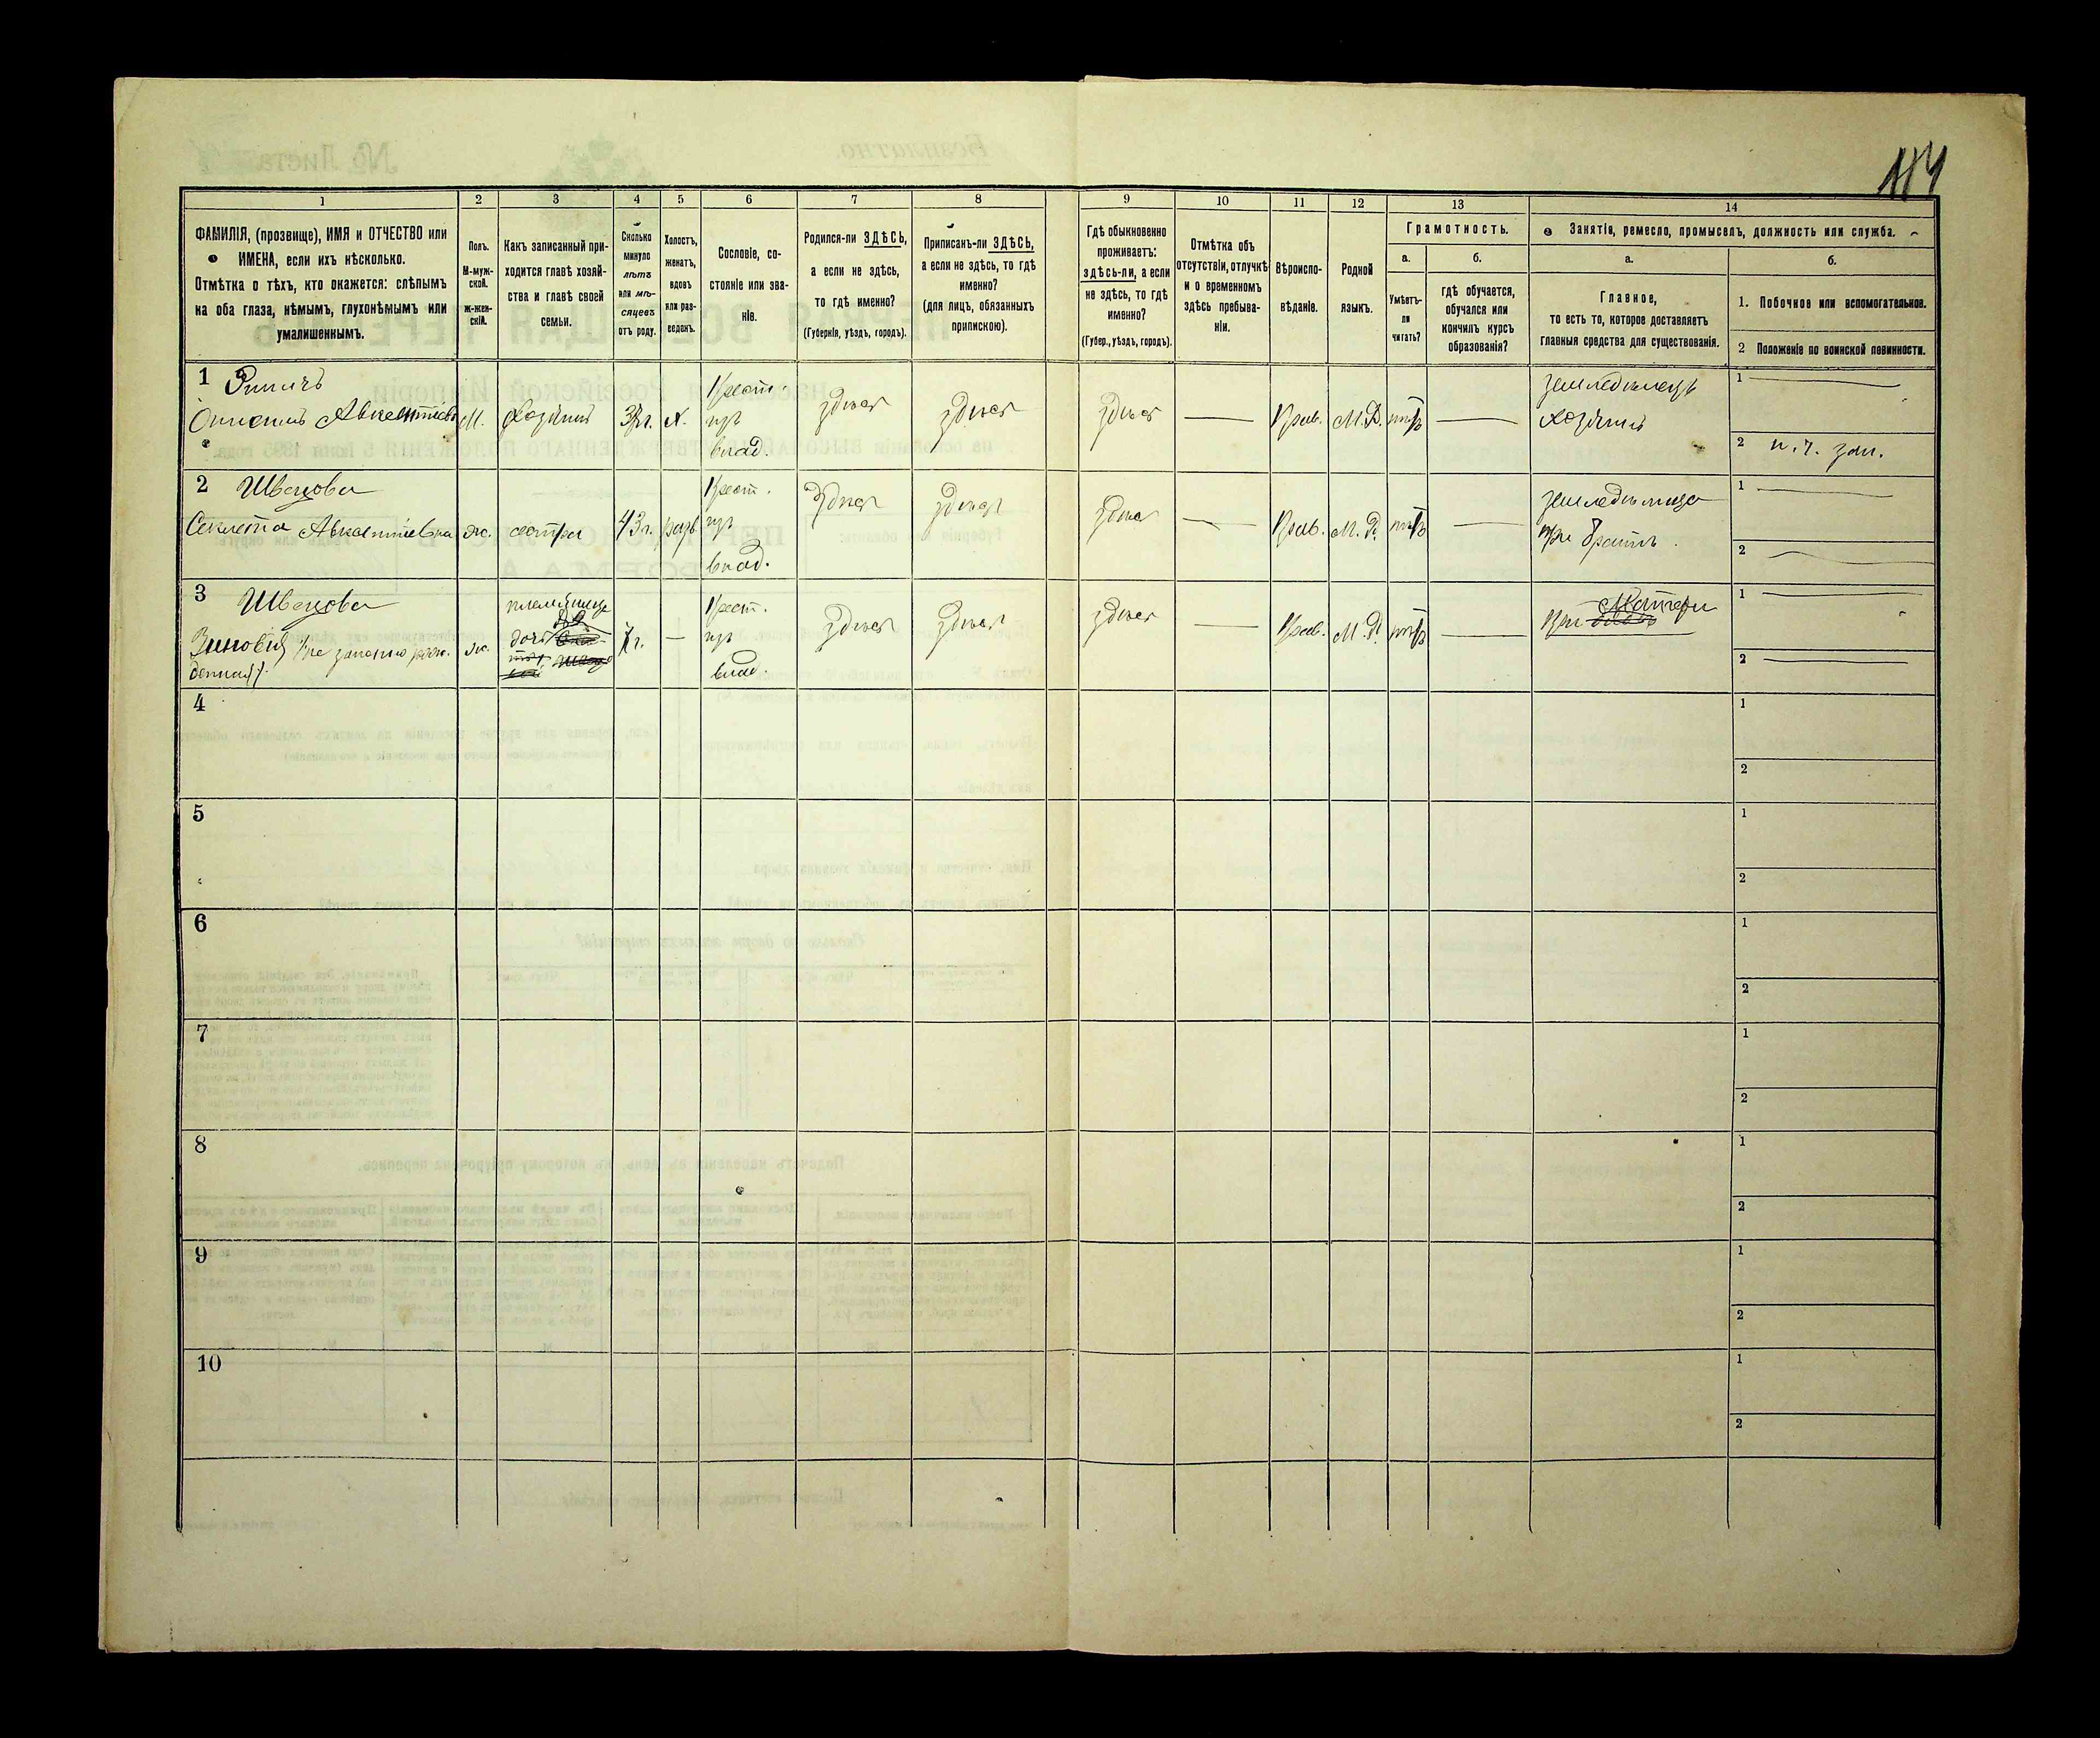 114
1
2
3
4
5
6
7
8
9
10
11
12
13
14
ФАМИЛІЯ, (прозвище), ИМЯ и ОТЧЕСТВО или
ИМЕНА, если ихъ нѣсколько.
Отмѣтка о тѣхъ, кто окажется: слѣпымъ
на оба глаза, нѣмымъ, глухонѣмымъ или
умалишеннымъ.
Полъ.
М-муж-
ской.
ж-жен-
скій.
Какъ записанный при-
ходится главѣ хозяй-
ства и главѣ своей
семьи.
Сколько
минуло
лѣтъ
или мѣ-
сяцевъ
отъ роду.
Холостъ,
женатъ,
вдовъ
или раз-
веденъ.
Сословіе, со-
стояніе или зва-
ніе.
Родился-ли ЗДѢСЬ,
а если не здѣсь,
то гдѣ именно?
(Губернія, уѣздъ, городъ).
Приписанъ-ли ЗДѢСЬ,
а если не здѣсь, то гдѣ
именно?
(для лицъ, обязанныхъ
припискою).
Гдѣ обыкновенно
проживаетъ:
здѣсь-ли, а если
не здѣсь, то гдѣ
именно?
(Губер., уѣздъ, городъ).
Отмѣтка объ
отсутствіи, отлучкѣ
и о временномъ
здѣсь пребыва-
ніи.
Вѣроиспо-
вѣданіе.
Родной
языкъ.
Грамотность.
а.
Умѣетъ-
ли
читать?
б.
гдѣ обучается,
обучался или
кончилъ курсъ
образованія?
Занятіе, ремесло, промыселъ, должность или служба.
а.
Главное,
то есть то, которое доставляетъ
главныя средства для существованія.
б.
1. Побочное или вспомогательное.
2 Положеніе по воинской повинности.
1
М.
Хозяинъ
Х.
Крест.
изъ
влад.
здѣсь
здѣсь
здѣсь
Прав.
М.Р.
нѣтъ
земледѣлецъ
хозяинъ
1
2
2 Швецова
Авксентіевна
ж.
сестра
43 г.
разв.
Крест.
изъ
влад.
здѣсь
здѣсь
здѣсь
Прав.
М.Р.
нѣтъ
при братѣ
1
2
3 Швецова
Зиновія (не законно рож-
денная).
ж.
племянница
дочь
7 г.
Крест.
изъ
влад.
здѣсь
здѣсь
здѣсь
Прав.
М.Р.
нѣтъ
При матери
1
2
4
1
2
5
1
2
6
1
2
7
1
2
8
1
2
9
1
2
10
1
2